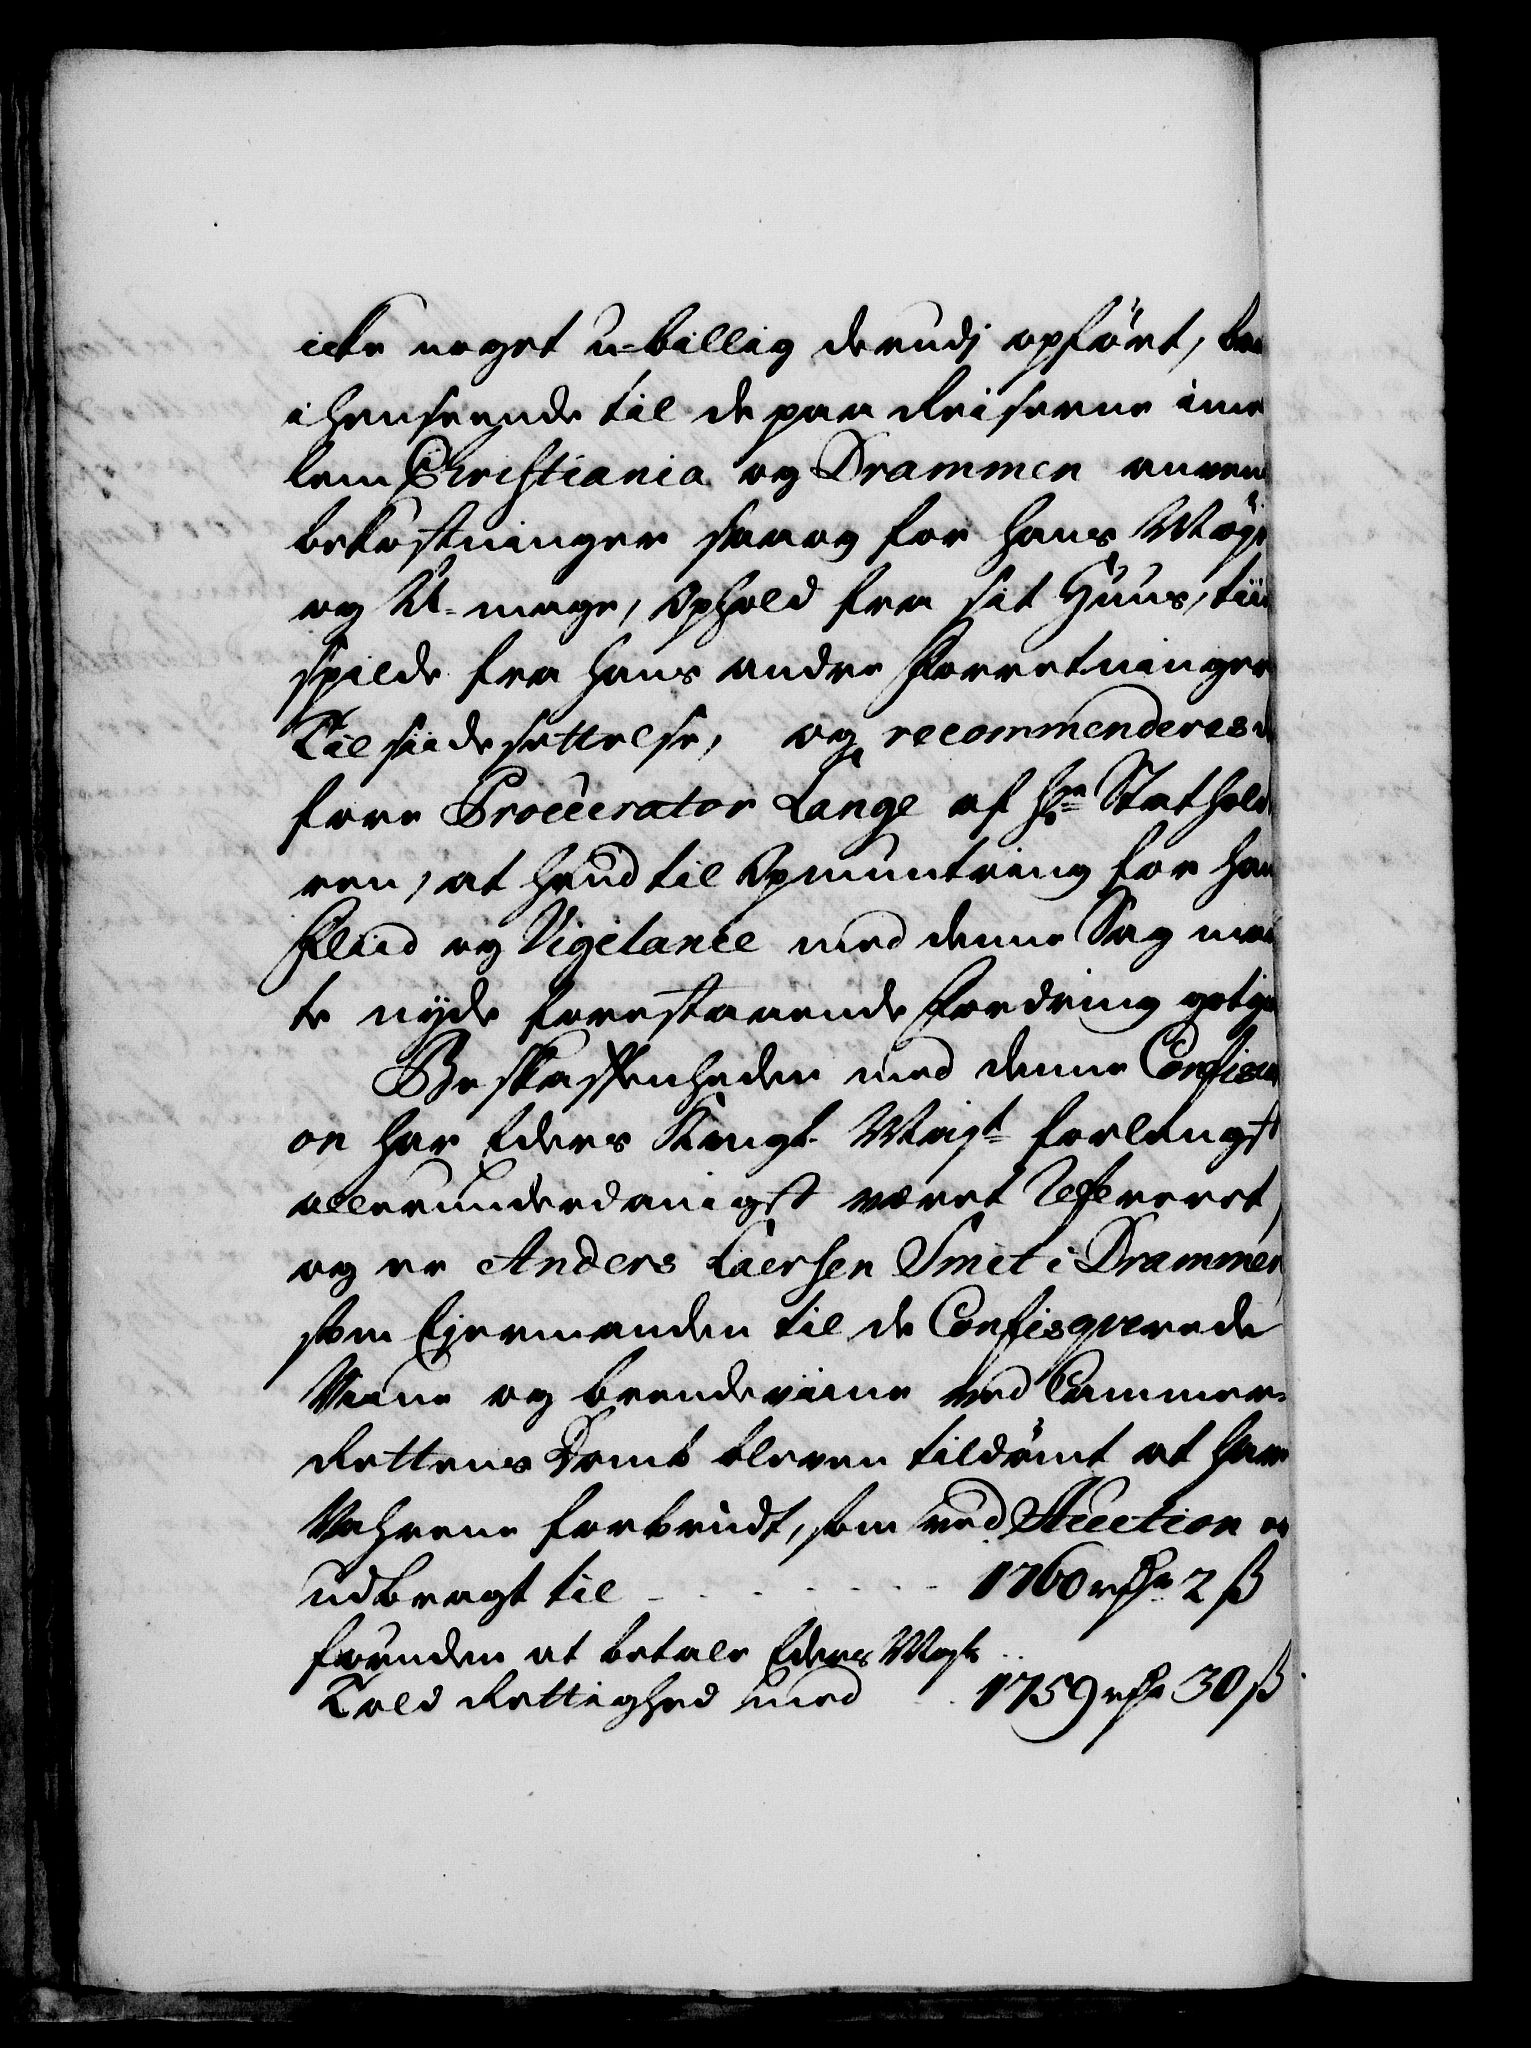 icke noget u-billig derudj opført, baa
i henseende til de paa Reiserne ime
lem Christiania og Drammen anven
bekostninger saa og for hans Møje
og U-mage, Ophold fra sit Huus, tiid
spilde fra hans andre Forretninger
Tilsiidesettelse, og recommenderes d
fore Procurator Lange af Hr Stathold
ren, at hand til Opmuntring for han
Fliid og Vigilance med denne Sag maa
te nyde forestaaende Fordring gotgi
Beskaffenheden med denne Confisca
on har Eders Kongl. Mayt forlengst
allerunderdanigst været Refereret,
og er Anders Laersen Smit i Drammen
som Ejermanden til de Confisqverede
Viine og brendeviine ved Cammer-
Rettens Domb bleven tildømt at have
Vahrene forbrudt, som ved Auction er
udbragt til - - - - - - - 1760 rdr 2 ß
foruden at betale Eders Mayts
Told Rettighed med - - 1759 rdr 30 ß